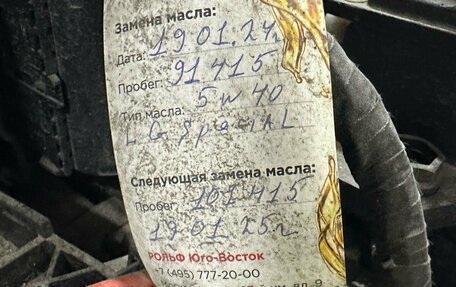 Замена масла:
Дата: 19 01. 24г
Пробег: 91 415
Тип масла: 5w40
L G SpeciaL
Следующая замена масла:
Пробег: 101 415
19.01.25г
РОЛЬФ Юго-Восток
+7 (495) 777-20-00
вл. 9